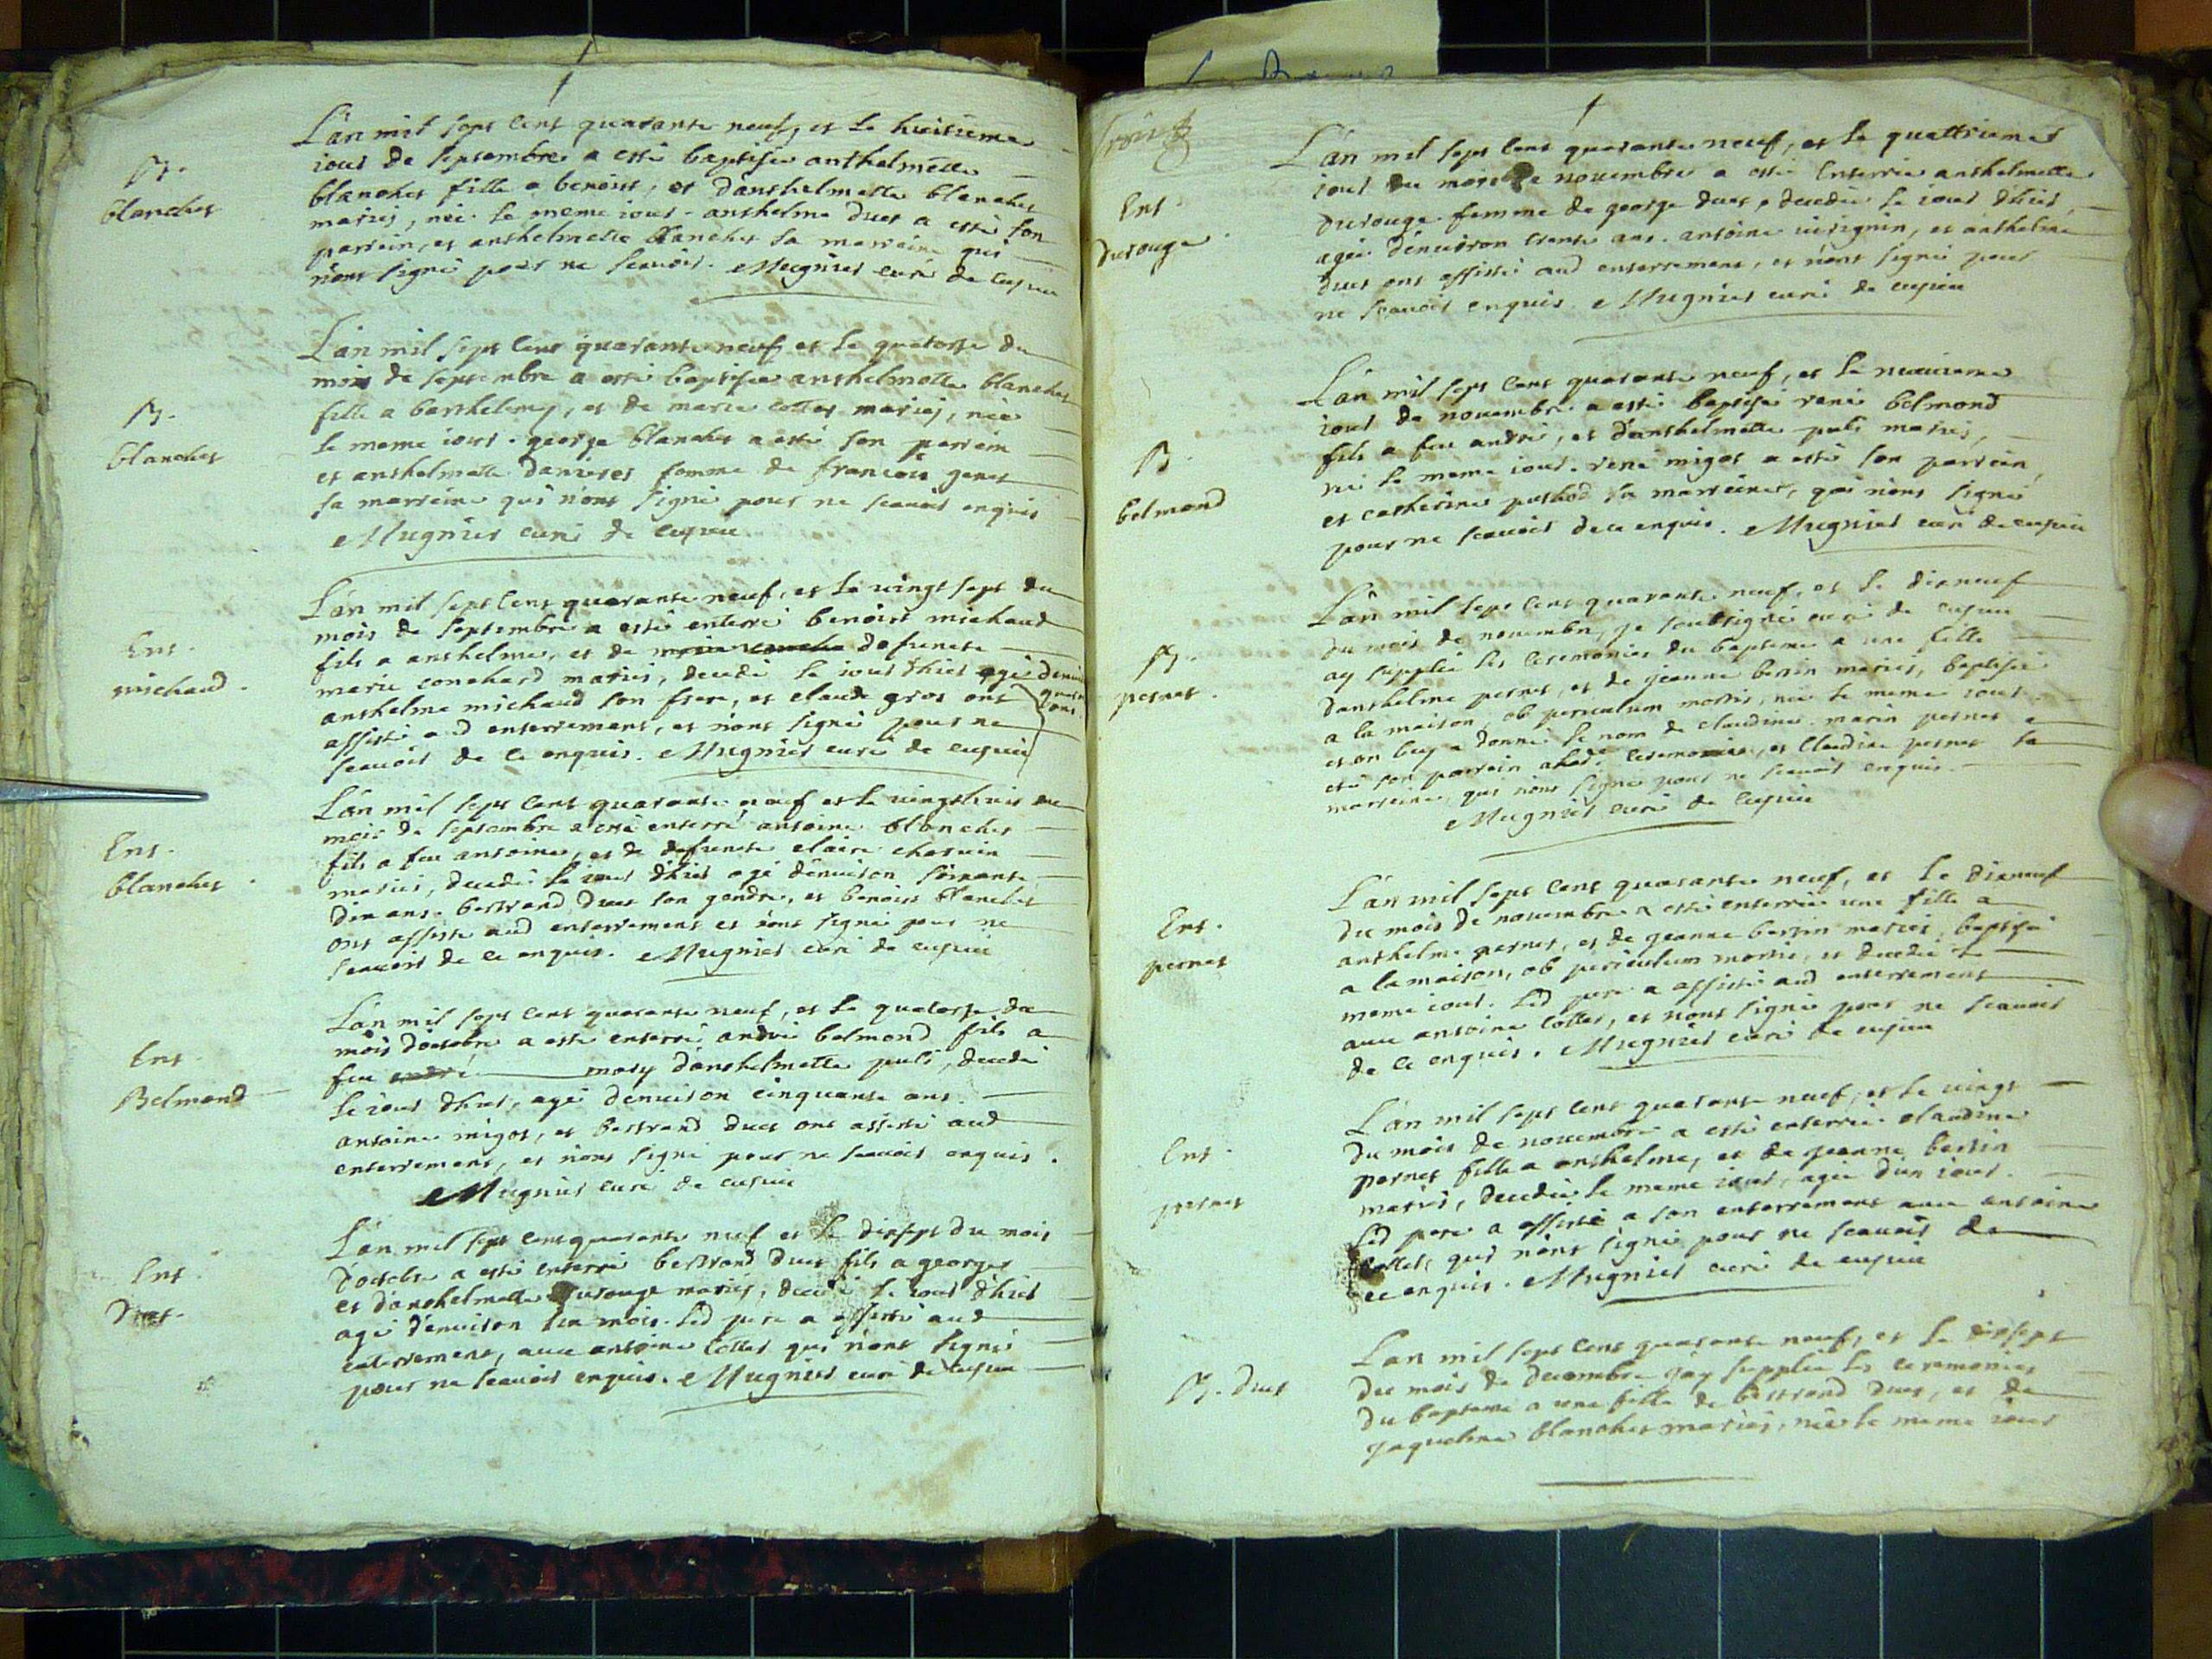 B.
blanchet
L'an mil sept cent quarante neuf, et le huitieme
iour de septembre a esté baptisée anthelmette
blanchet fille a benoist, et d'anthelmette blanchet
mariés, née le meme iour. anthelme duet a esté son
parrein, et anthelmette blanchet sa marreine qui
n'ont signé pour ne scavoir. Mugnier curé de cuzieu
B.
blanchet
L'an mil sept cent quarante neuf et le quatorze du
mois de septembre a esté baptisée anthelmette blanchet
fille a barthelemy, et de marie collet mariés, née
le meme iour. george blanchet a esté son parrein
et anthelmette femme de francois genet
sa marreine qui n'ont signé pour ne scavoir enquis
Mugnier curé de cuzieu
Ent.
michaud.
L'an mil sept cent quarante neuf, et le vingt sept du
mois de septembre a esté enterré benoist michaud
fils a anthelme, et de defuncte
marie conchard mariés, decedé le iour d'hier agé
anthelme michaud son frere, et claude gros ont
assisté aud enterrement, et n'ont signé pour ne
scavoir de ce enquis. Mugnier curé de cuzieu
Ent.
blanchet.
L'an mil sept cent quarante neuf et le vingthuit du
mois de septembre a esté enterré antoine blanchet
fils a feu antoine, et de defuncte claire charvin
mariés, decedé le iour d'hier agé d'enviton soixante
dix ans. bertrand duet son gendre, et benoist blanchet
ont assisté aud enterrement et n'ont signé pour ne
scavoir de ce enquis. Mugnier curé de cuzieu
Ent.
Belmond
L'an mil sept cent quarante neuf, et le quatorze du
mois d'octobre a esté enterré andré belmond fils a
feu andré mary d'anthelmette puli, decedé
le iour d'hier, agé d'enviton cinquante ans.
antoine migot, et bertrand duet ont assisté aud
enterrement, et n'ont signé pour ne scavoir enquis.
Mugnier curé de cuzieu
Ent.
duet.
L'an mil sept cent quarante neuf et le dixsept du mois
d'octobre a esté enterré bertrand duet fils a george
et d'anthelmette durouge mariés, decedé le iour d'hier
agé d'enviton six mois. led pere a assisté aud
enterrement, avec antoine collet qui n'ont signé
pour ne scavoir enquis. Mugnier curé de cuzieu
Ent.
durouge.
L'an mil sept cent quarante neuf, et le quattrieme
iour du mois de novembre a esté enterrée anthelmette
durouge femme de george duet, decedée le iour d'hier,
agée d'environ trente ans. antoine virignin, et anthelme
duet ont assisté aud enterrement, et n'ont signé pour
ne scavoir enquis. Mugnier curé de cuzieu
B.
belmond
L'an mil sept cent quarante neuf, et le neuvieme
iour de novembre a esté baptisé rené belmond
fils a feu andré, et d'anthelmette puli mariés,
né le meme iour. rené migot a esté son parrein,
et catherine pethod sa marreine, qui n'ont signé
pour ne scavoir de ce enquis. Mugnier curé de cuzieu
B.
pernet.
L'an mil sept cent quarante neuf, et le dixneuf
du mois de novembre, je soubsigné curé de cuzieu
ay supplée les ceremonies du bapteme a une fille
d'anthelme pernet, et de jeanne bertin mariés, baptisée
a la maison, ob periculum mortis, née le meme iour.
et on luy a donné le nom de claudine. marin pernet a
esté son parrein ceremonies, et claudine pernet sa
marreine, qui n'ont signé pour ne scavoir enquis.
Mugnier curé de cuzieu
Ent.
pernet
L'an mil sept cent quarante neuf, et le dixneuf
du mois de novembre a esté enterrée une fille a
anthelme pernet, et de jeanne bertin mariés, baptisée
a la maison, ob periculum mortis, et decedée le
meme iour. led pere a assisté aud enterrement
avec antoine collet, et n'ont signé pour ne scavoir
de ce enquis. Mugnier curé de cuzieu
Ent.
pernet
L'an mil sept cent quarante neuf, et le vingt
du mois de novembre a esté enterrée claudine
pernet fille a anthelme, et de jeanne bertin
mariés, decedée le meme iour, agée d'un iour.
led pere a assisté a son enterrement avec antoine
collet, qui n'ont signé pour ne scavoir de
ce enquis. Mugnier curé de cuzieu
B. duet
L'an mil sept cent quarante neuf, et le dixsept
du mois de decembre j'ay supplée les ceremonies
du bapteme a une fille de bertrand duet, et de
jaqueline blanchet mariés, née le meme iour